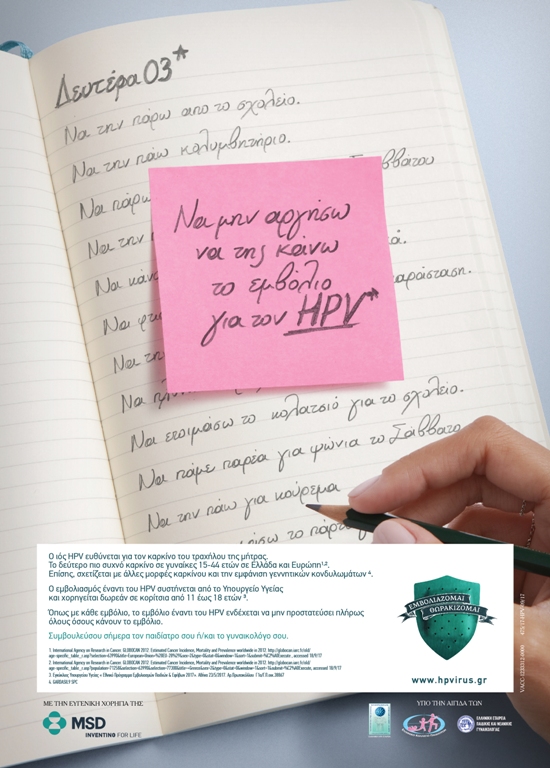 Δευτέρα 03*
Να την πάρω απο το σχολείο.
Να την πάω κολυμβητήριο.
Να πάρω Σαββάτου
Να την
Να κάν
παράσταση.
Να φτι
Να τη
Να μην αργήσω
να της κάνω
το εμβόλιο
για τον HPV*
Να ετοιμάσω το κολατσιό για το σχολείο.
Να πάμε παρέα για ψώνια το Σάββατο
Να την πάω για κούρεμα
Ο ιός HPV ευθύνεται για τον καρκίνο του τραχήλου της μήτρας.
Το δεύτερο πιο συχνό καρκίνο σε γυναίκες 15-44 ετών σε Ελλάδα και Ευρώπη¹,².
Επίσης, σχετίζεται με άλλες μορφές καρκίνου και την εμφάνιση γεννητικών κονδυλωμάτων ⁴.
Ο εμβολιασμός έναντι του HPV συστήνεται από το Υπουργείο Υγείας
και χορηγείται δωρεάν σε κορίτσια από 11 έως 18 ετών ³.
Όπως με κάθε εμβόλιο, το εμβόλιο έναντι του HPV ενδέχεται να μην προστατεύσει πλήρως
όλους όσους κάνουν το εμβόλιο.
Συμβουλεύσου σήμερα τον παιδίατρο σου ή/και το γυναικολόγο σου.
1. International Agency on Research in Cancer. GLOBOCAN 2012: Estimated Cancer Incidence, Mortality and Prevalence worldwide in 2012.
2. International Agency on Research in Cancer. GLOBOCAN 2012: Estimated Cancer Incidence, Mortality and Prevalence worldwide in 2012.
4. GARDASIL9 SPC
ΕΜΒΟΛΙΑΖΟΜΑΙ
ΘΩΡΑΚΙΖΟΜΑΙ
www.hpvirus.gr
ΜΕ ΤΗΝ ΕΥΓΕΝΙΚΗ ΧΟΡΗΓΙΑ ΤΗΣ
MSD
INVENTING FOR LIFE
ΥΠΟ ΤΗΝ ΑΙΓΙΔΑ ΤΩΝ
ΕΛΛΗΝΙΚΗ ΕΤΑΙΡΕΙΑ
ΠΑΙΔΙΚΗΣ ΚΑΙ ΝΕΑΝΙΚΗΣ
ΓΥΝΑΙΚΟΛΟΓΙΑΣ